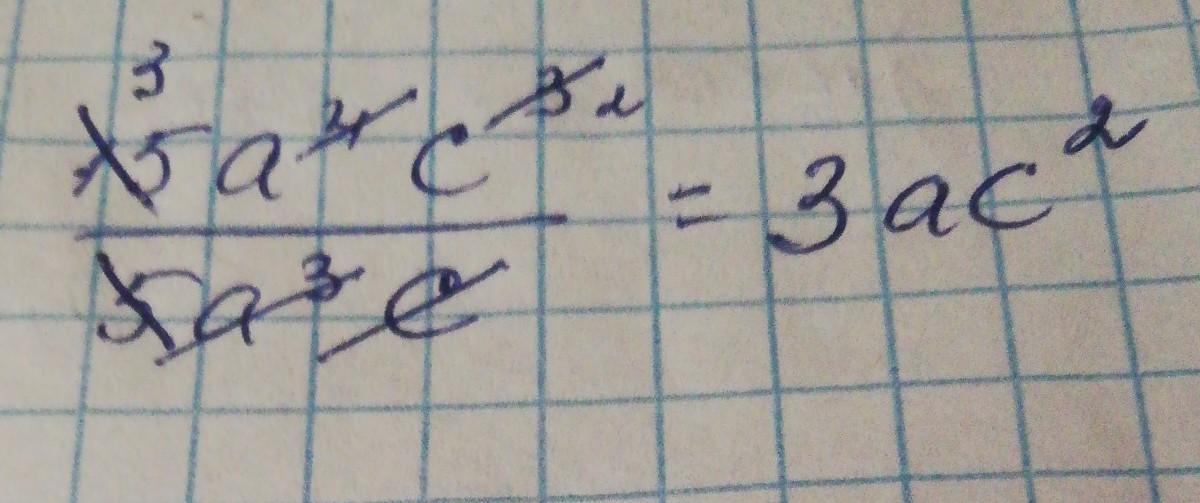 3
15a⁴c³ 2
5a³c = 3ac²